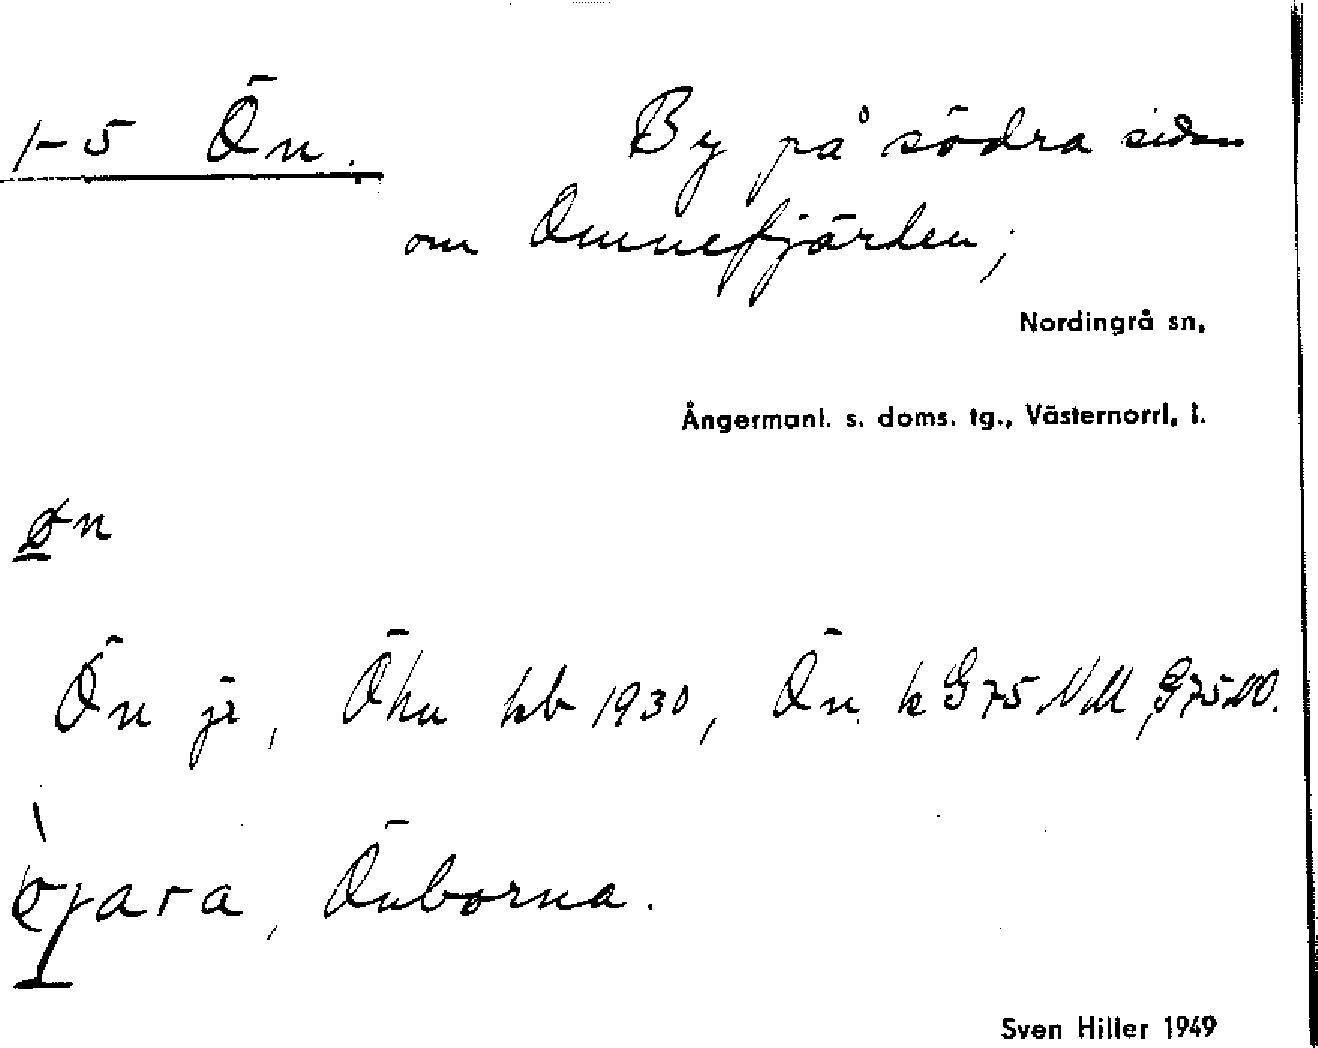 1-5 Ön. By på södra sidan
om Omnefjärden;
Nordingrå sn,
Ångermanl. s. doms. tg., Västernorrl. l.
øn
Ön jr, Öhn kb 1930, Ön k G75 NM, G75 NO.
Önborna.
Sven Hiller 1949